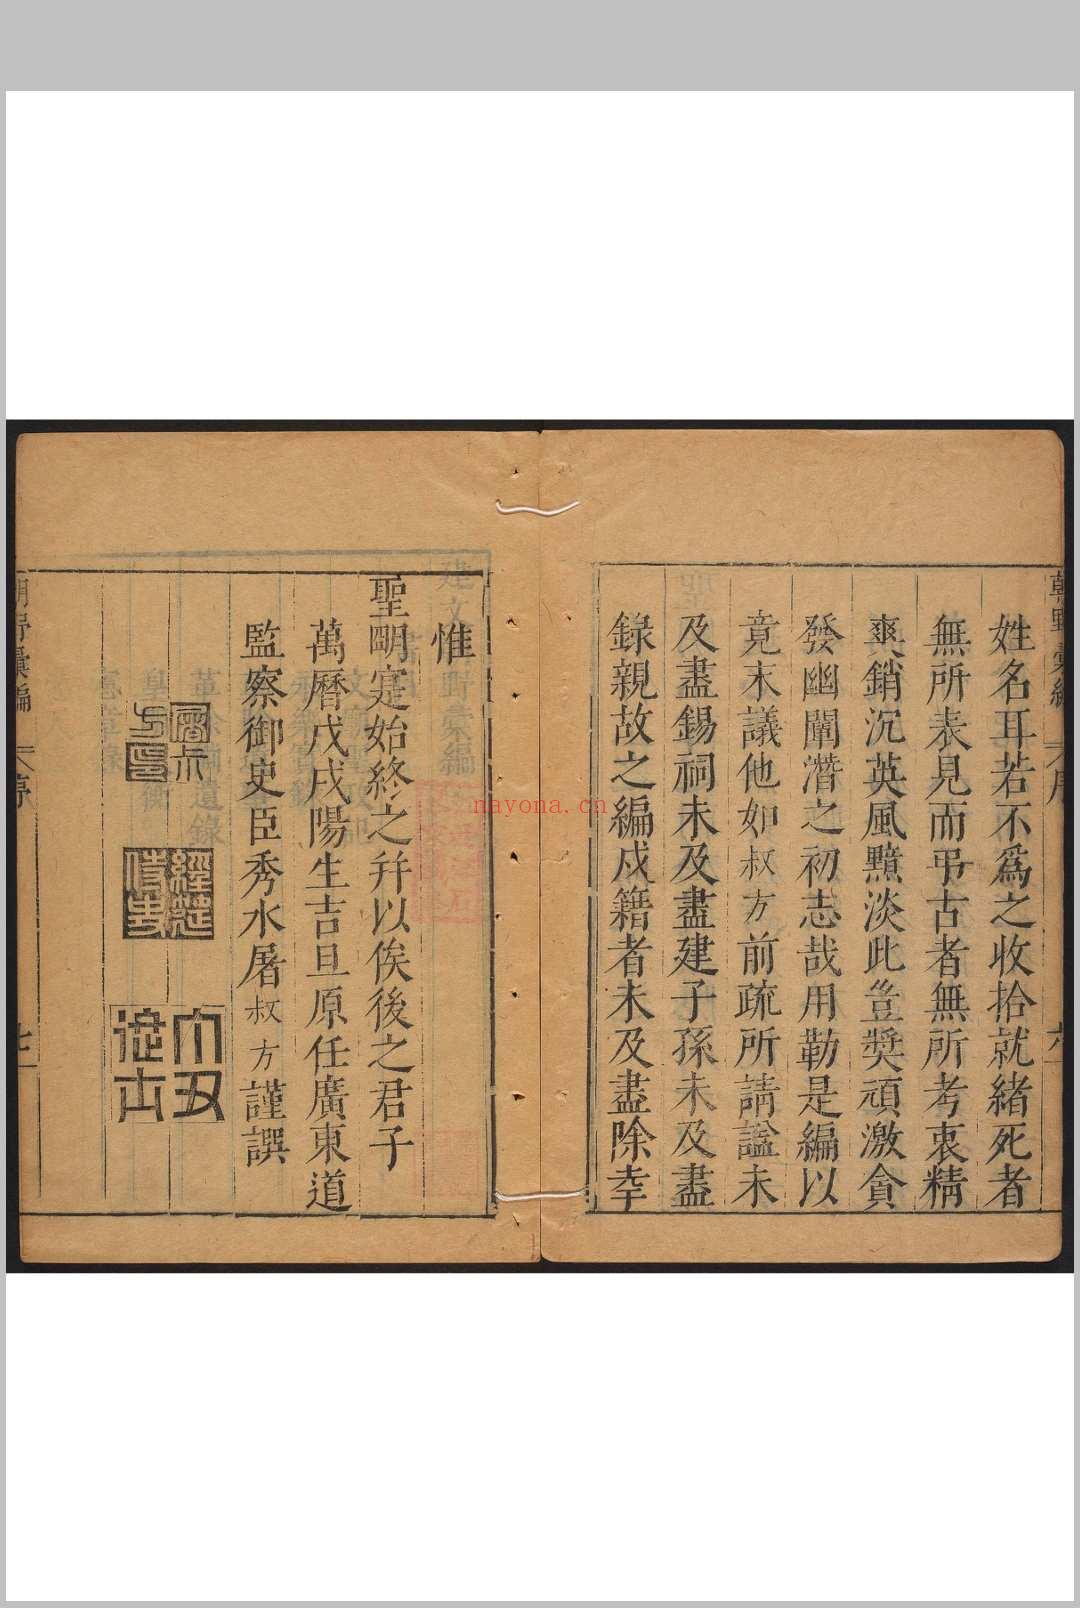 姓名耳若不爲之收拾就緒死者
無所表見而弔古者無所考衷精
爽銷沉英風黯淡此豈奬頑激貪
發幽闡潛之初志哉用勒是編以
竟末議他如叔方前疏所請謚未
及盡錫祠未及盡建子孫未及盡
錄親故之編戍籍者未及盡除幸
惟
聖明寔始終之幷以俟後之君子
萬曆戊戌陽生吉旦原任廣東道
監察御史臣秀水屠叔方謹譔
nayona.cn
朝野彙編
序
七